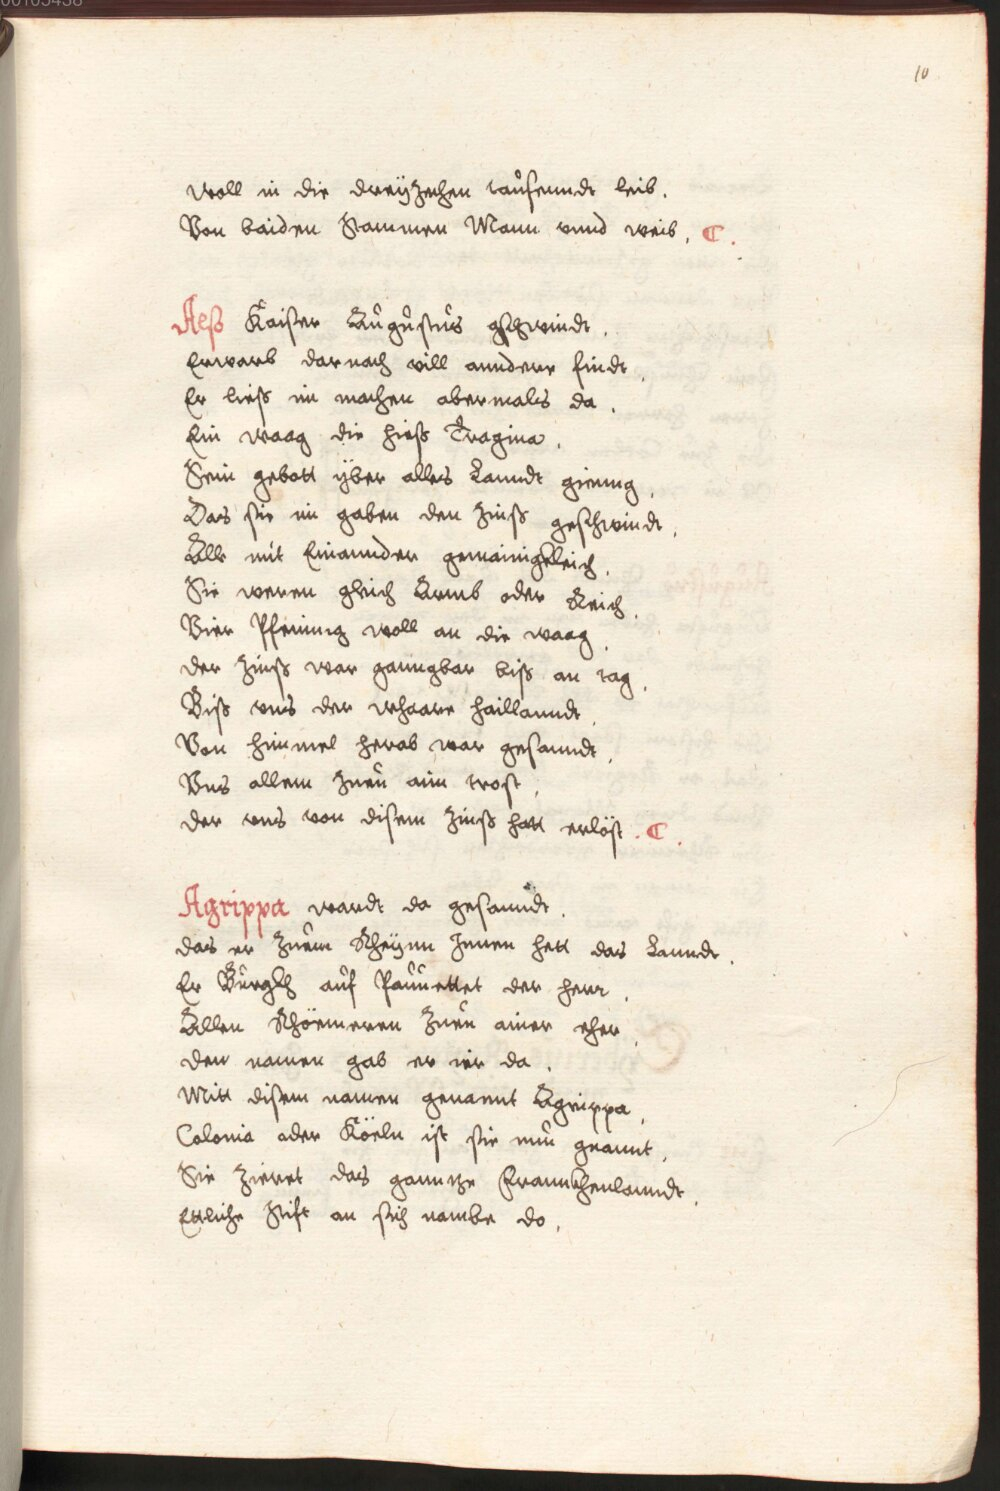 00103438
10
Woll in die dreÿzehen taußenndt leib.
Von baiden Stammen Mann vnnd weib. C.
Alß Kaiser Augustus gschwindt.
Erwarb darnach vill annderr kindt.
Er ließ im machen abermals da.
Ein waag die hieß Tragina.
Sein gebott ÿber alles Lanndt gieng.
Das sie im gaben den Zinß geschwindt.
Alle mit Einannder gemainigkleich.
Sie weren gleich Armb oder Reich.
Vier Pfening woll an die waag.
der Zinß war ganngbar biß an tag.
Biß vns der whaare haillanndt.
Von himmel herab war gesanndt.
Vns allem Zueu ain trost.
der vns von disem Zinß hatt erlöst. C.
Agrippa wardt da gesanndt.
das er Zuem Rheÿnn Innen hett das Lanndt.
Er Burgkh auf Pauuettet der herr.
Allen Rhöemeren Zueu ainer eher.
den namen gab er ier da.
Mitt disem namen genannt Agrippa.
Colonia oder Köeln ist sie nun gnannt.
Sie Zieret das ganntze Frannckhenlanndt.
Ettliche Stift an sich nambe do.